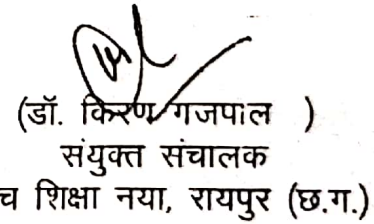 (डॉ. किरण गजपाल )
संयुक्त संचालक
च शिक्षा नया, रायपुर (छ.ग.)